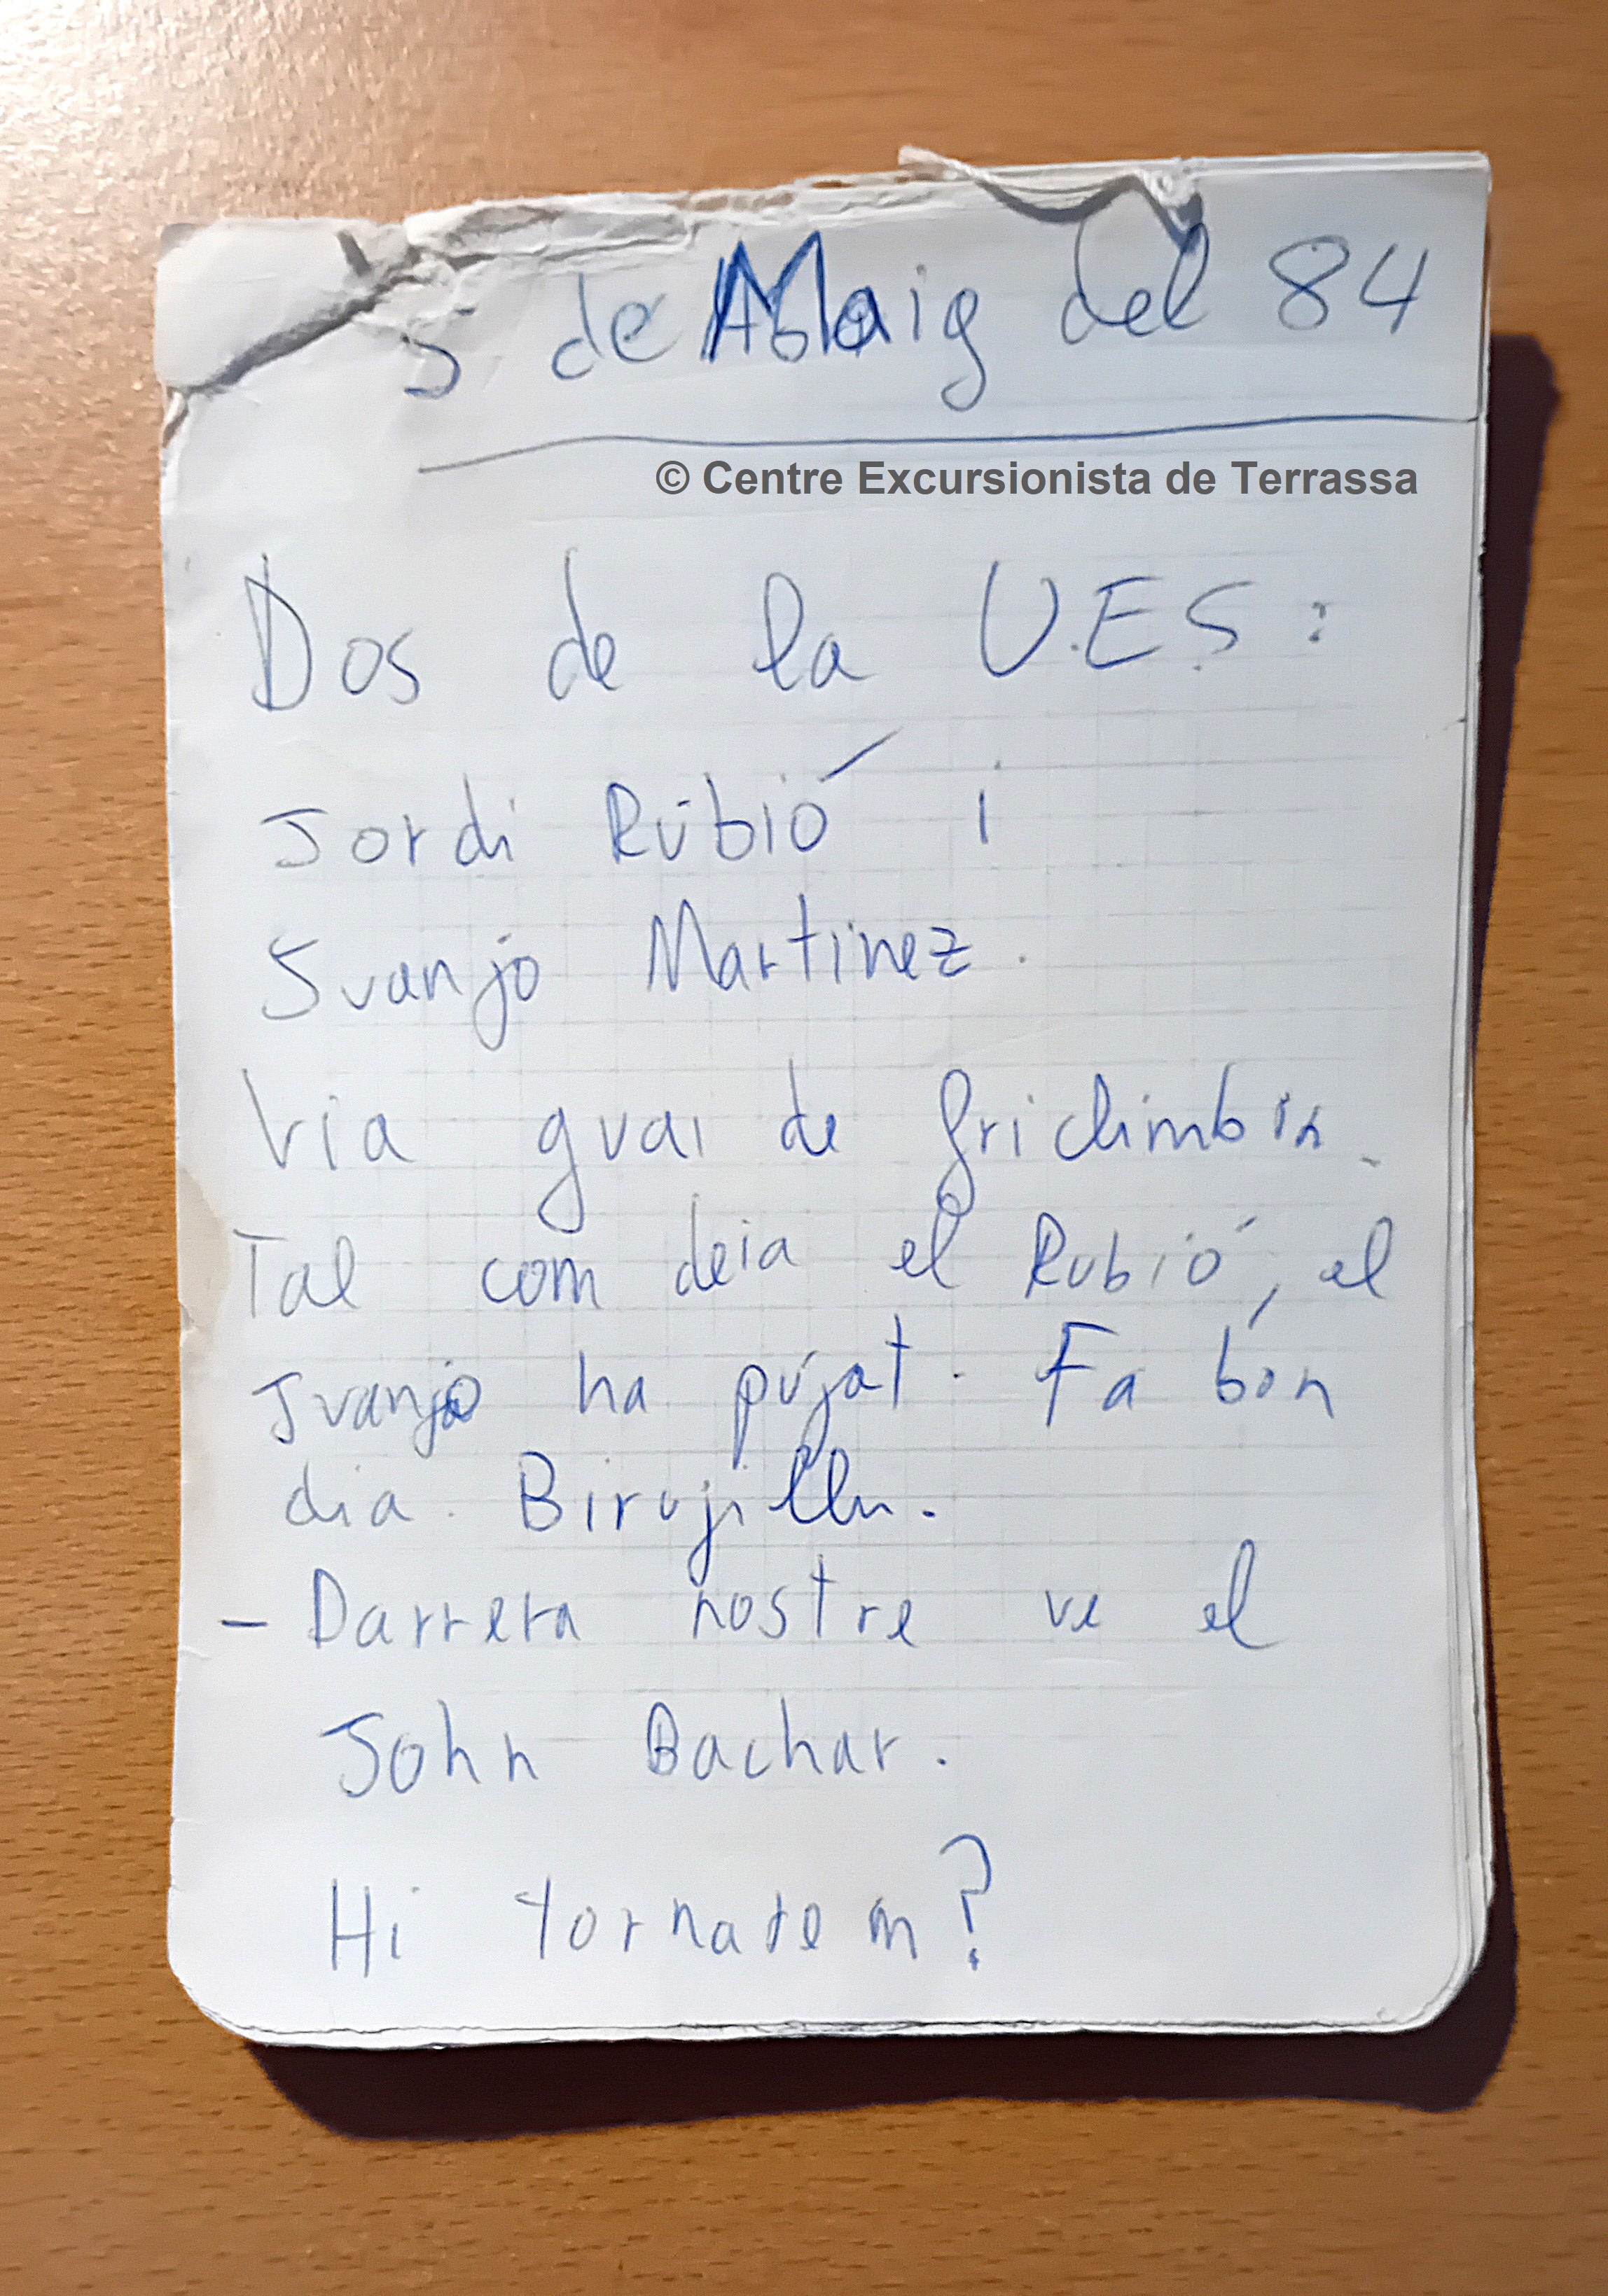 5 de Maig del 84
© Centre Excursionista de Terrassa
Dos de la U.E.S.:
Jordi Rubió i
Juanjo Martinez.
Via guai de friclimbin.
Tal com deia el Rubió, el
Juanjo ha pujat. Fa bon
dia. Birujillu.
- Darrera nostre ve el
John Bachar.
Hi tornarem?